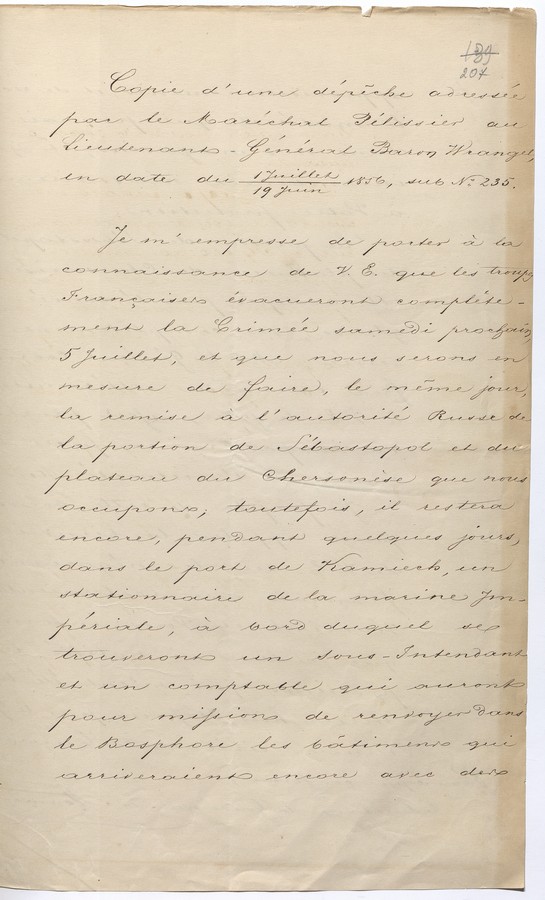 139
204
Copie d'une dépêche adressée
par le Maréchal Pélissier au
Lieutenant-Général Baron Wrangel,
en date du 1 Juillet / 19 Juin 1856, sub № 235.
Je m'empresse de porter à la
connaissance de V. E. que les troupes
Françaises évacueront complète-
ment la Crimée samedi prochain,
5 Juillet, et que nous serons en
mesure de faire, le même jour,
la remise à l'autorité Russe de
la portion de Sébastopol et du
plateau du Chersonèse que nous
occupons; toutefois, il restera
encore, pendant quelques jours,
dans le port de Kamiech, un
stationnaire de la marine Im-
périale, à bord duquel se
trouveront un sous-Intendant
et un comptable qui auront
pour mission de renvoyer dans
le Bosphore les bâtiments qui
arriveraient encore avec des